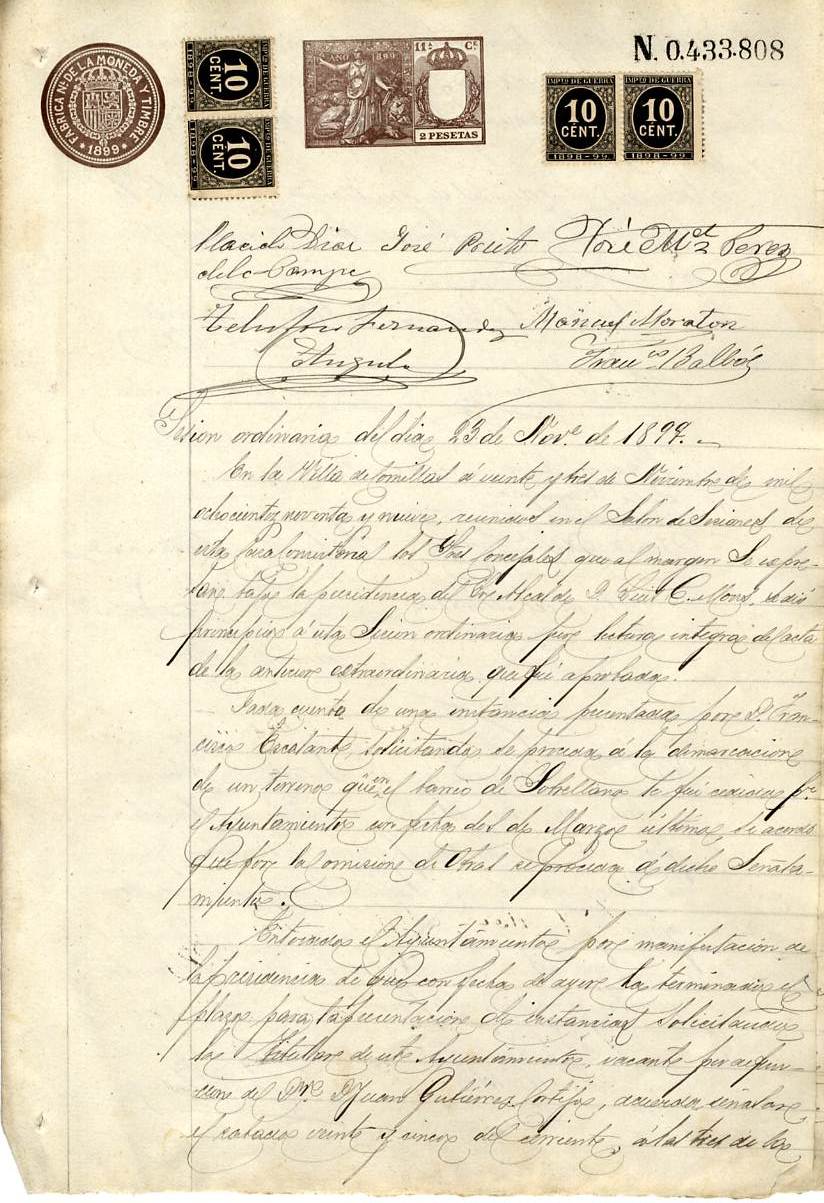 FÁBRICA Nal DE LA MONEDA Y TIMBRE
1899
IMPTO DE GUERRA
10
CENT.
1898-99
IMPTO DE GUERRA
10
CENT.
1898-99
AÑO 1899
11ª Cª
2 PESETAS
N. 0.433.808
IMPTO DE GUERRA
10
CENT.
1898-99
IMPTO DE GUERRA
10
CENT.
1898-99
Placido Diaz José Prieto José Mª Perez
de la Campa
Telesforo Fernandez Manuel Moraton
Angulo Franco Balbás
Sesion ordinaria del dia 23 de Nove de 1899.
En la Villa de Comillas á veinte y tres de Noviembre de mil
ochocientos noventa y nueve, reunidos en el Salon de Sesiones de
esta Casa Consistorial los Sres Concejales que al margen se espre-
san, bajo la presidencia del Sr Alcalde D. Luis C. , se dió
principio á esta Sesion ordinaria por lectura integra del acta
de la anterior extraordinaria, que fué aprobada.
Dada cuenta de una instancia presentada por D. Fran-
cisco Escalante, solicitando se proceda á la demarcacion
de un terreno que en el barrio de Sobrellano le fué cedido pr
el Ayuntamiento con fecha dos de Marzo último se acordó
que por la Comision de Obras se proceda á dicho Señala-
miento.
Enterados el Ayuntamiento por manifestacion de
la presidencia de que con fecha de ayer ha terminado el
plazo para la presentacion de instancias solicitando
la Titular de este Ayuntamiento, vacante por defun-
cion del D. Juan Gutiérrez Cortijo, acuerda señalar
el sabado veinte y cinco del corriente, á las tres de la